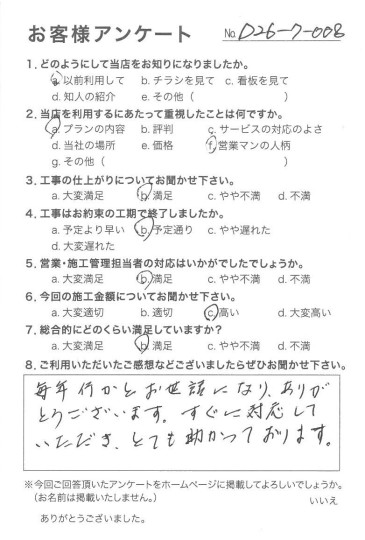 お客様アンケート No. D26-7-008
1. どのようにして当店をお知りになりましたか。
a. 以前利用して b. チラシを見て c. 看板を見て
d. 知人の紹介 e. その他( )
2. 当店を利用するにあたって重視したことは何ですか。
a. プランの内容 b. 評判 c. サービスの対応のよさ
d. 当社の場所 e. 価格 f. 営業マンの人柄
g. その他( )
3. 工事の仕上がりについてお聞かせ下さい。
a. 大変満足 b. 満足 c. やや不満 d. 不満
4. 工事はお約束の工期で終了しましたか。
a. 予定より早い b. 予定通り c. やや遅れた
d. 大変遅れた
5. 営業・施工管理担当者の対応はいかがでしたでしょうか。
a. 大変満足 b. 満足 c. やや不満 d. 不満
6. 今回の施工金額についてお聞かせ下さい。
a. 大変適切 b. 適切 c. 高い d. 大変高い
7. 総合的にどのくらい満足していますか?
a. 大変満足 b. 満足 c. やや不満 d. 不満
8. ご利用いただいたご感想などございましたらぜひお聞かせ下さい。
毎年何かとお世話になり、ありが
とうございます。すぐに対応して
いただき、とても助かっております。
※今回ご回答頂いたアンケートをホームページに掲載してよろしいでしょうか。
(お名前は掲載いたしません。) いいえ
ありがとうございました。